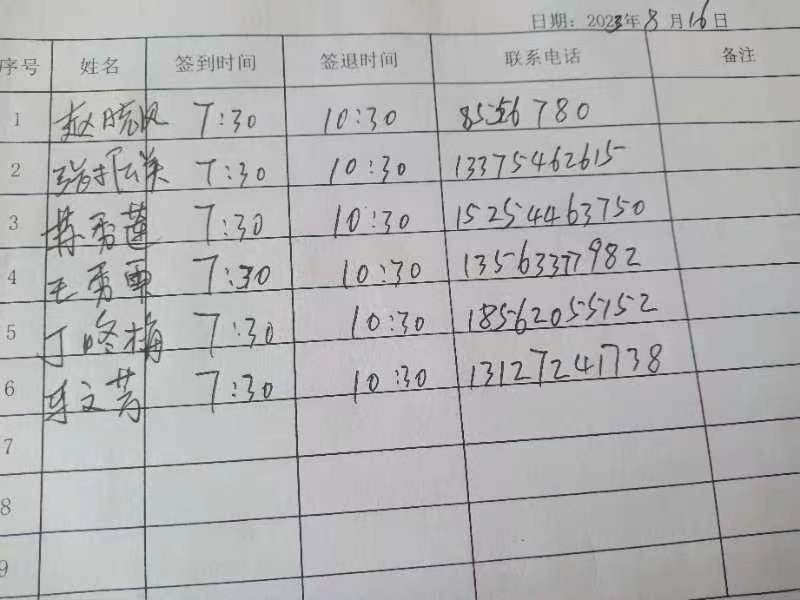 日期：2023年8月16日
序号 姓名 签到时间 签退时间 联系电话 备注
1 赵晓凤 7:30 10:30 8556780
2 7:30 10:30 13375462615
3 秀莲 7:30 10:30 15254463750
4 王秀更 7:30 10:30 13563377982
5 丁咚梅 7:30 10:30 18562055752
6 文芳 7:30 10:30 13127241738
7
8
9